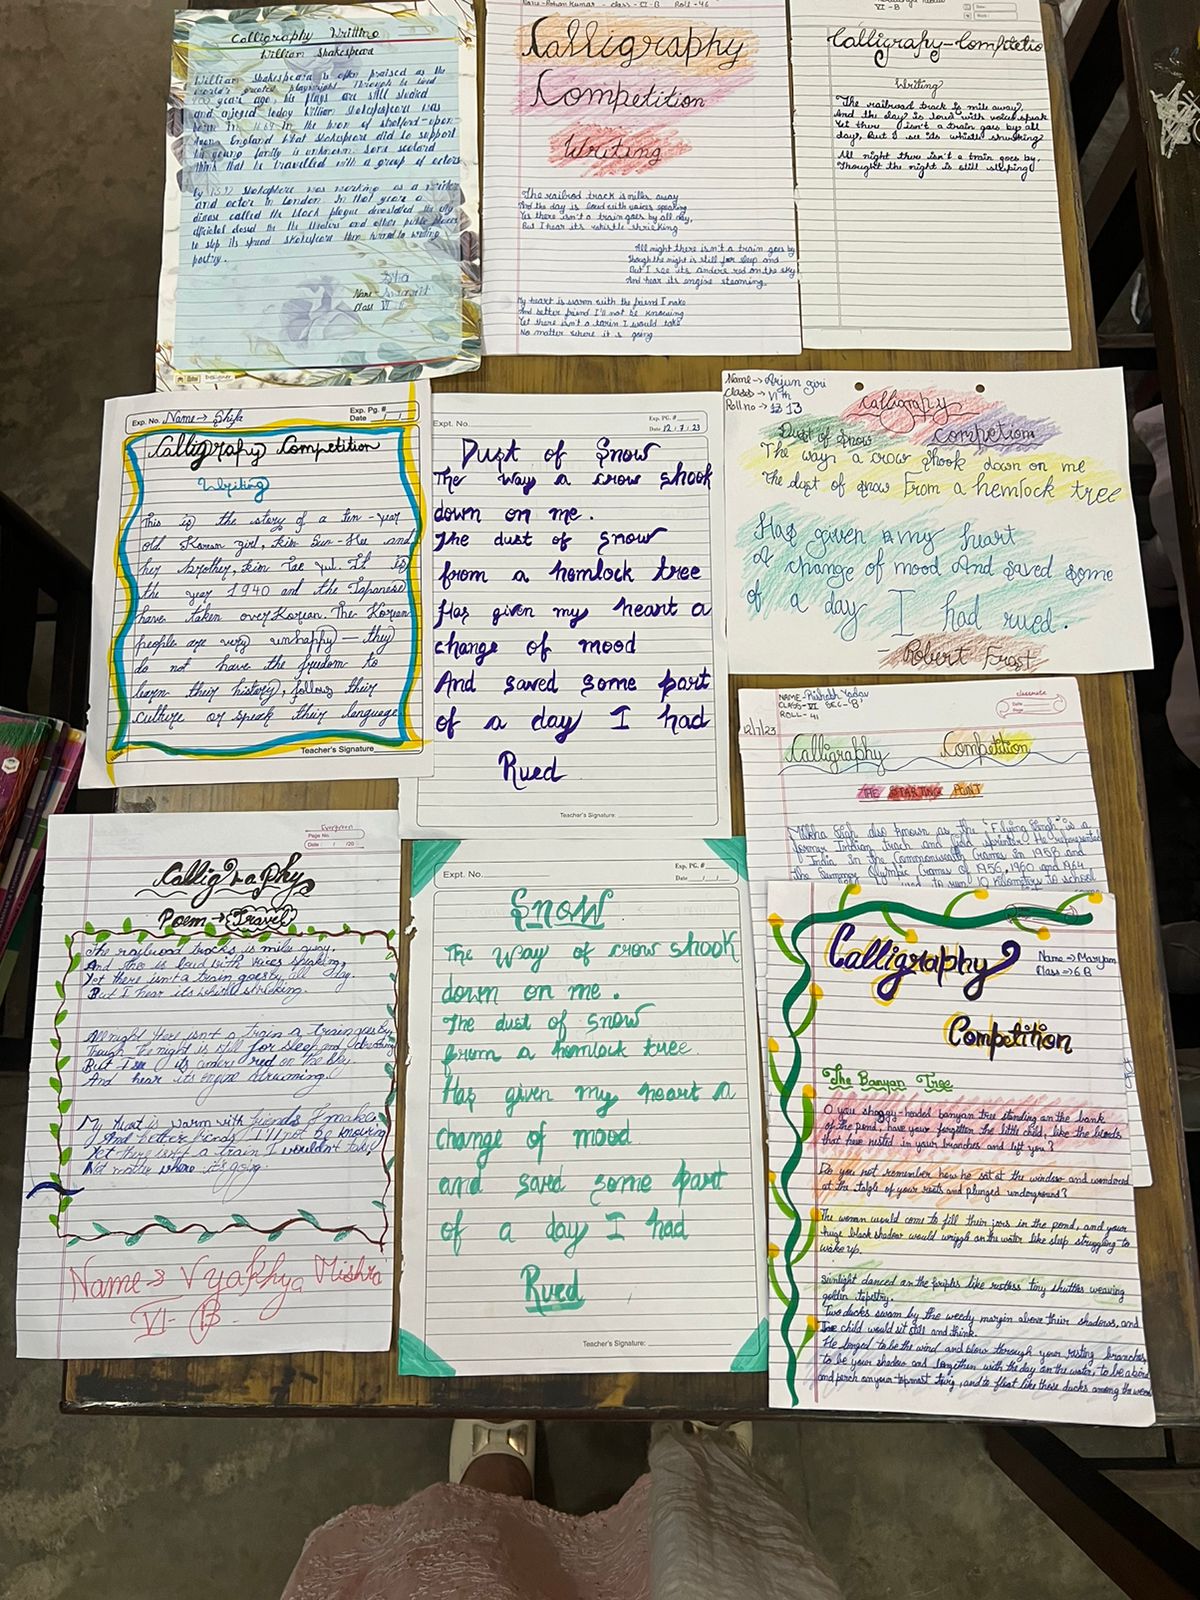 Calligraphy Writting
William Shakespeare
William Shakespeare is often praised as the
world's greatest playwright. Through he lived
400 years ago, his plays are still studied
and enjoyed today William Shakespeare was
born in in the town of
upon England What Shakespeare did to support
his young family is unknown. Some
think that he travelled with a group of actors
By 1592 Shakespeare was working as a writer
and actor in London. In that year a
disease called the black plague devastated the city
officials closed the theaters and other public places
to stop its spread Shakespeare then turned to writing
poetry.
Name-
Class VI
Name- Rohan Kumar - class - VI - B Roll - 46
Calligraphy
Competition
Writing
The railrod track is miles away
And the day is loud with voices speaking
Yes there isn't a train goes by all day,
But I hear its whistle shrieking
All night there isn't a train goes by
Though the night is still for sleep and
But I see its andere red on the sky
And hear its engine steaming.
My heart is warm with the friend I make
And better friend I'll not be knowing
Yet there isn't a tarin I would take
No matter where it is going
VI - B
Calligrafy-Competetio
Writing
The railroad track is mile away,
And the day is loud with voice speak
Yet there isn't a train goes by all
day, But I see its whistle shrieking
All night ther isn't a train goes by,
Thought the night is still sleeping
Exp. No. Name→ Shifa
Exp. Pg. #
Date
Calligraphy Competition
Writing
This is the story of a ten-year
old Korean girl, Kim Sun-Hee and
her brother, Kim Tae Yul. It is
the year 1940 and the Japanese
have taken over Korean. The Korean
people are very unhappy — they
do not have the freedom to
learn their history, follow their
culture or speak their language
Teacher's Signature
Expt. No.
Exp. PG. #
Date 12/7/23
Dust of Snow
The Way a crow shook
down on me.
The dust of Snow
from a hemlock tree
Has given my heart a
change of mood
And saved some part
of a day I had
Rued
Teacher's Signature:
Name→ Arjun giri
Class→ VIth
Roll no→ 13
Calligrapy
Competiom
Dust of Snow
The way a crow shook down on me
The dust of snow from a hemlock tree
Has given my heart
a change of mood And saved some
of a day I had rued.
- Robert Frost
NAME- Rishabh Yadav
CLASS- VI SEC- 'B'
ROLL- 41
classmate
Date
Page
12/7/23
Calligraphy Competition
THE STARTING POINT
Milkha Singh also known as the "Flying Singh" is a
former Indian track and field sprinter. He represented
India in the Commonwealth Games in 1958 and
the Summer Olympic Games of 1956, 1960 and 1964
used to run 10 kilometers to school
Evergreen
Page No.
Date : / /20
Calligraphy
Poem→ Travel
The railroad tracks is miles away,
And the is loud with voices
Yet there isn't a train goes by all day.
But I hear its whistle shreiking.
All night there isn't a train a train goes by
Though the night is still for sleep and
But I see its red on the sky
And hear its engine
My heart is warm with friends I make
And better friends I'll not be knowing
Yet there isn't a train I wouldn't take
Not matter where its going.
Name→ Vyakhya Mishra
VI - B
Expt. No.
Exp. PG. #
Date
Snow
The Way of crow shook
down on me.
The dust of snow
from a hemlock tree.
Has given my heart a
change of mood
and saved some part
of a day I had
Rued
Teacher's Signature:
Calligraphy
Name→ Maryam
Class→ 6 B
Competition
The Banyan Tree
O you shaggy-headed banyan tree standing on the bank
of the pond, have your forgotten the little child, like the
that have nested in your branches and left you?
Do you not remember how he sat at the window and wondered
at the tangle of your roots and plunged underground?
The woman would come to fill their jars in the pond, and your
huge black shadow would wriggle on the water like sleep struggling to
wake up.
Sunlight danced on the ripples like restless tiny shuttles weaving
golden tapestry.
Two ducks swam by the weedy margin above their shadows, and
child would sit still and think.
He longed to be the wind and blow through your resting branches
to be your shadow and lengthen with the day on the water, to be a bird
and perch on your topmost twig, and to float like those ducks among the weeds